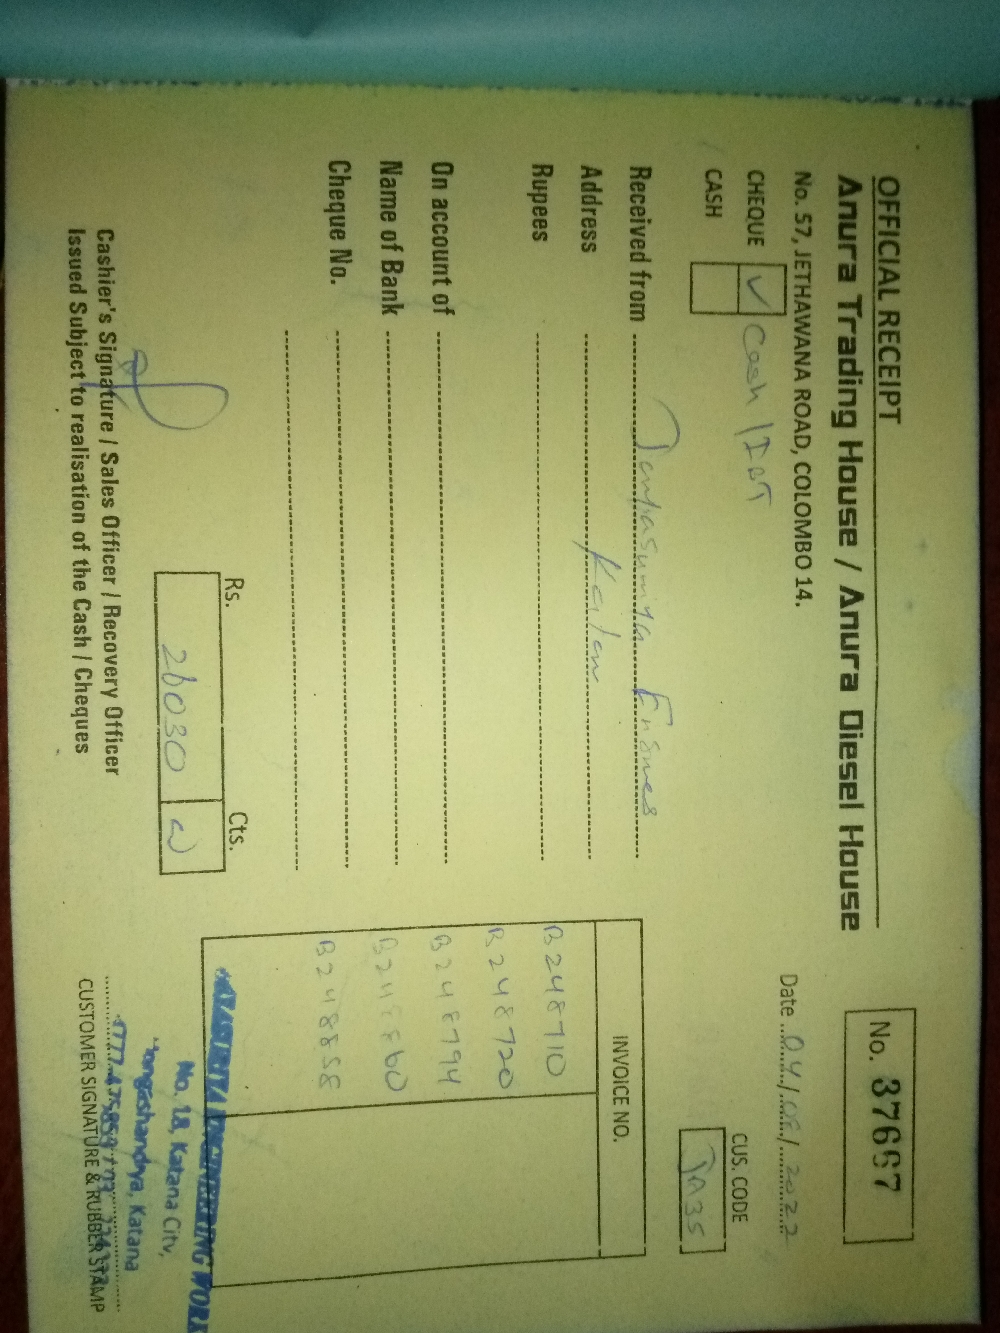 OFFICIAL RECEIPT
Anura Trading House / Anura Diesel House
No. 57, JETHAWANA ROAD, COLOMBO 14.
No. 37697
Date 04/08/2022
CHEQUE ✓ Cash / IBT
CASH
CUS. CODE
JA35
Received from
Address
Rupees
On account of
Name of Bank
Cheque No.
INVOICE NO.
B248710
B248720
B248794
B248860
B248858
Rs. Cts.
26030
Cashier's Signature / Sales Officer / Recovery Officer
Issued Subject to realisation of the Cash / Cheques
No. 18, Katana City,
Katana
CUSTOMER SIGNATURE & RUBBER STAMP